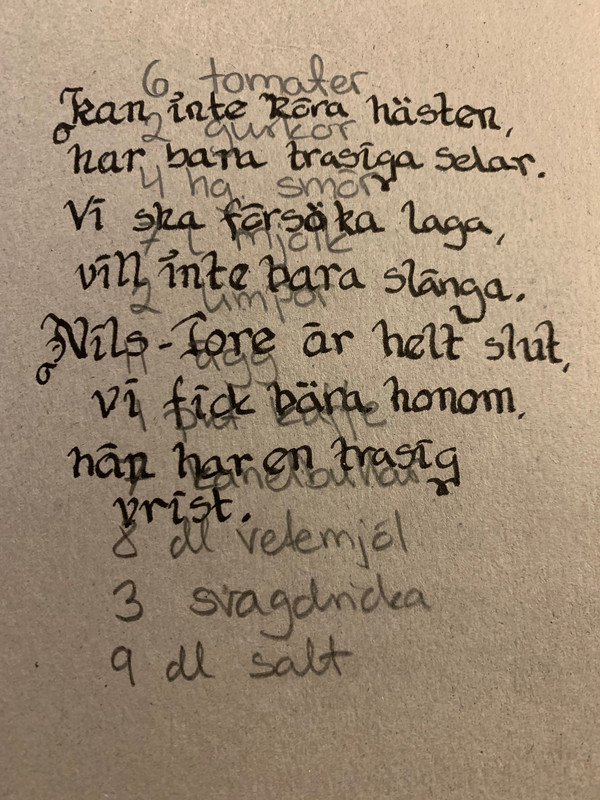 6 tomater
Kan inte köra hästen,
2 gurkor
har bara trasiga selar.
4 hg smör
Vi ska försöka laga,
7 l mjölk
vill inte bara slänga.
2 limpor
Nils-Tore är helt slut,
11 ägg
vi fick bära honom,
1 pkt kaffe
han har en trasig
kanelbullar
vrist.
8 dl vetemjöl
3 svagdricka
9 dl salt